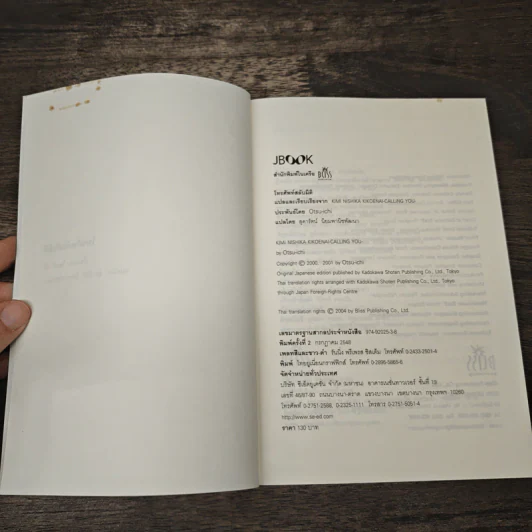 JBOOK
สำนักพิมพ์ในเครือ BLISS
โทรศัพท์สลับมิติ
แปลและเรียบเรียงจาก KIMI NISHIKA KIKOENAI-CALLING YOU
ประพันธ์โดย Otsu-ichi
แปลโดย
KIMI NISHIKA KIKOENAI-CALLING YOU
by Otsu-ichi
Copyright © 2000, 2001 by Otsu-ichi
Original Japanese edition published by Kadokawa Shoten Publishing Co., Ltd. Tokyo
Thai translation rights arranged with Kadokawa Shoten Publishing Co., Ltd., Tokyo
through Japan Foreign-Rights Centre
Thai translation rights © 2004 by Bliss Publishing Co., Ltd.
เลขมาตรฐานสากลประจำหนังสือ 974-92325-5-8
พิมพ์ครั้งที่ 2 กรกฎาคม 2548
เพลทสีและขาว-ดำ โทรศัพท์
พิมพ์ ไทยยูเนี่ยนกราฟฟิกส์ โทรศัพท์
จัดจำหน่ายทั่วประเทศ
บริษัท ซีเอ็ดยูเคชั่น จำกัด (มหาชน) อาคารเนชั่นทาวเวอร์ ชั้นที่ 19
เลขที่ 46/87-90 ถนนบางนา-ตราด แขวงบางนา เขตบางนา กรุงเทพฯ 10260
โทรศัพท์ โทรสาร
http://www.se-ed.com
ราคา 130 บาท